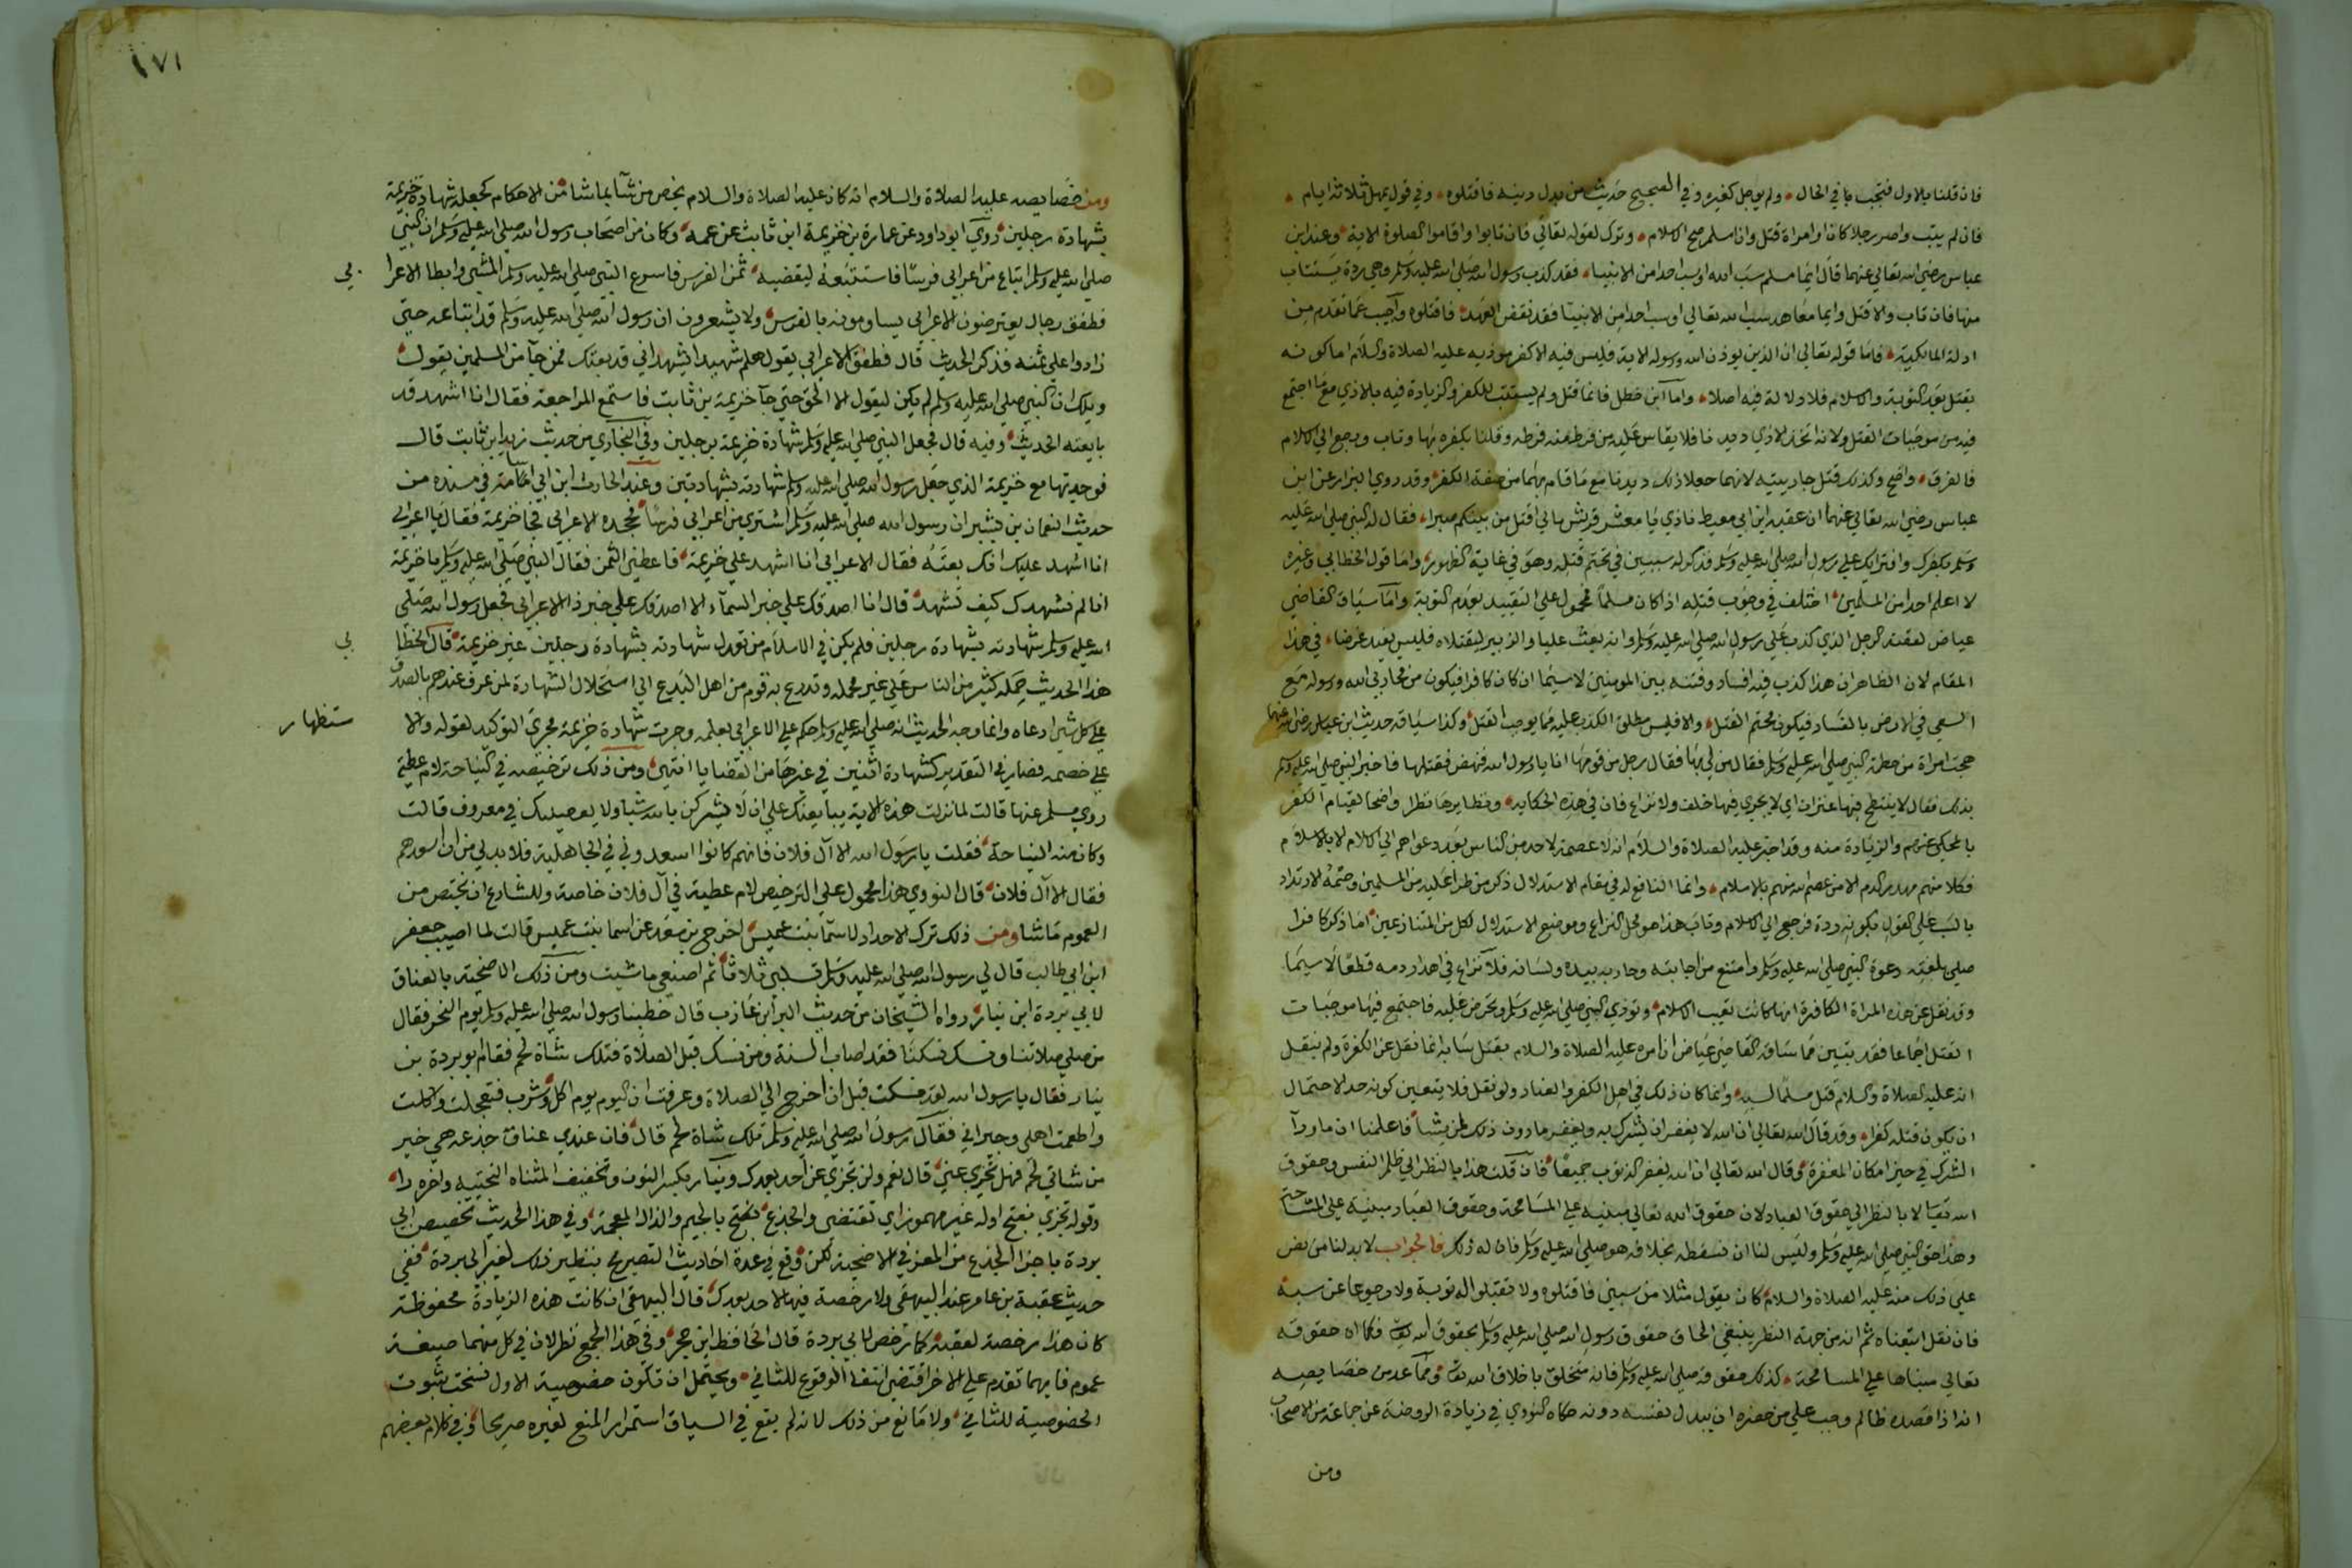 فان قلنا بالاول فتجب بها في الحال ولم يوجل كغيره وفي الصحيح حديث من بدل دينه فاقتلوه وفي قول يمهل ثلاثة ايام
فان لم يتب واصر رجلا كان او امراة قتل وان اسلم صح الاسلام وترك لقوله تعالي فان تابوا واقاموا الصلوة الاية وعند ابن
عباس رضي الله تعالي عنهما قال ايما مسلم سب الله او سب احدا من الانبيا فقد كذب رسول الله صلي الله عليه وسلم وهي ردة يستتاب
منها فان تاب والا قتل وايما معاهد سب الله تعالي او سب احدا من الانبيا فقد نقض العهد فاقتلوه واجيب عما تقدم من
ادلة المالكية فاما قوله تعالي ان الذين يوذون الله ورسوله الاية فليس فيه الا كفر موذيه عليه الصلاة والسلام اما كونه
يقتل بعد التوبة والاسلام فلا دلالة فيه اصلا واما ابن خطل فانما قتل ولم يستتب للكفر والزيادة فيه بالاذي مع ما اجتمع
فيه من موجبات القتل ولانه اتخذ الاذي ديدنا فلا يقاس عليه من فرط منه فرطه وقلنا بكفره بها وتاب ورجع الي الاسلام
فالفرق واضح وكذلك قتل جاريتيه لانهما جعلا ذلك ديدنا مع ما قام بهما من صفة الكفر وقد روي البزار عن ابن
عباس رضي الله تعالي عنهما ان عقبة ابن ابي معيط نادي يا معشر قريش مالي اقتل من بينكم صبرا فقال له النبي صلي الله عليه
وسلم بكفرك وافترايك علي رسول الله صلي الله عليه وسلم فذكر له سببين في تحتم قتله وهو في غاية الظهور واما قول الخطابي وغيره
لا اعلم احدا من المسلمين اختلف في وجوب قتله اذا كان مسلما محمول علي التقييد بعدم التوبة واما سياق القاضي
عياض لقصة الرجل الذي كذب علي رسول الله صلي الله عليه وسلم وانه بعث عليا والزبير ليقتلاه فليس يفيد غرضا في هذا
المقام لان الظاهر ان هذا كذب فيه افساد وفتنة بين المومنين لاسيما ان كان كافرا فيكون من محاربي الله ورسوله مع
السعي في الارض بالفساد فيكون محتم القتل والا فليس مطلق الكذب عليه مما يوجب القتل وكذا سياقه حديث ابن عباس رضي الله عنهما
هجت امراة من خطمة النبي صلي الله عليه وسلم فقال من لي بها فقال رجل من قومها انا يا رسول الله فنهض فقتلها فاخبر النبي صلي الله عليه وسلم
بذلك فقال لا ينتطح فيها عنزان اي لا يجري فيها خلف ولا نزاع فان في هذه الحكاية ونظايرها نظرا واضحا لقيام الكفر
بالمحكي عنهم والزيادة منه وقد اخبر عليه الصلاة والسلام انه لا عصمة لاحد من الناس بعد دعواهم الي الاسلام الا بالاسلام
فكلا منهم مهدر الدم الا من عصم الله منهم بالاسلام وانما النافع له في مقام الاستدلال ذكر من طرا عليه من المسلمين وصمة الارتداد
بالسب علي القول بكونه ردة فرجع الي الاسلام وتاب هذا هو محل النزاع وموضع الاستدلال لكل من المتنازعين اما ذكر كافرا
صلي بلغته دعوة النبي صلي الله عليه وسلم وامتنع من اجابته وحاربه بيده ولسانه فلا نزاع في اهدار دمه قطعا لاسيما
وقد نقل عن هذه المراة الكافرة انها كانت تعيب الاسلام وتوذي النبي صلي الله عليه وسلم وتحرض عليه فاجتمع فيها موجبات
القتل اجماعا فقد تبين مما ساقه القاضي عياض ان امره عليه الصلاة والسلام بقتل سابه انما نقل عن الكفرة ولم ينقل
انه عليه الصلاة والسلام قتل مسلما لسبه وانما كان ذلك في اهل الكفر والعناد ولو نقل فلا يتعين كونه حدا لاحتمال
ان يكون قتله كفرا وقد قال الله تعالي ان الله لا يغفر ان يشرك به ويغفر ما دون ذلك لمن يشا فاعلمنا ان ما ورآ
الشرك في حيز امكان المغفرة وقال الله تعالي ان الله يغفر الذنوب جميعا فان قلت هذا بالنظر الي ظلم النفس وحقوق
الله تعالا بالنظر الي حقوق العباد لان حقوق الله تعالي مبنية علي المسامحة وحقوق العباد مبنية علي المشاحة
وهذا حق النبي صلي الله عليه وسلم وليس لنا ان نسقطه بخلافه هو صلي الله عليه وسلم فان له ذلك فالجواب لابد لنا من نص
علي ذلك منه عليه الصلاة والسلام كان يقول مثلا من سبني فاقتلوه ولا تقبلوا له توبة ولا رجوعا عن سبه
فان نقل اتبعناه ثم انه من جهة النظر ينبغي الحاق حقوق رسول الله صلي الله عليه وسلم بحقوق الله تعالي فكما ان حقوقه
تعالي مبناها علي المسامحة كذلك حقوقه صلي الله عليه وسلم فانه متخلق باخلاق الله تعالي ومما عد من خصايصه
انه اذا قصده ظالم وجب علي من حضره ان يبدل نفسه دونه حكاه النووي في زيادة الروضة عن جماعة من الاصحاب
ومن
١٧١
ومن خصايصه عليه الصلاة والسلام انه كان عليه الصلاة والسلام يخص من شآ بما شا من الاحكام كجعله شهادة خزيمة
بشهادة رجلين روي ابو داود عن عمارة بن خزيمة ابن ثابت عن عمه وكان من اصحاب رسول الله صلي الله عليه وسلم ان النبي
صلي الله عليه وسلم ابتاع من اعرابي فرسا فاستتبعه ليقضيه ثمن الفرس فاسرع النبي صلي الله عليه وسلم المشي وابطا الاعرا
بي
فطفق رجال يعترضون الاعرابي يساومونه بالفرس ولا يشعرون ان رسول الله صلي الله عليه وسلم قد ابتاعه حتي
زادوا علي ثمنه فذكر الحديث قال فطفق الاعرابي يقول هلم شهيدا يشهد اني قد بعتك فمن جآ من المسلمين يقول
ويلك ان النبي صلي الله عليه وسلم لم يكن ليقول الا الحق حتي جآ خزيمة بن ثابت فاستمع المراجعة فقال انا اشهد قد
بايعته الحديث وفيه قال فجعل النبي صلي الله عليه وسلم شهادة خزيمة برجلين وفي البخاري من حديث زيد ابن ثابت قال
فوجدتها مع خزيمة الذي جعل رسول الله صلي الله عليه وسلم شهادته بشهادتين وعند الحارث ابن ابي اسامة في مسنده من
حديث النعمان بن بشير ان رسول الله صلي الله عليه وسلم اشتري من اعرابي فرسا فجحده الاعرابي فجا خزيمة فقال يا اعرابي
انا اشهد عليك انك بعته فقال الاعرابي انا اشهد علي خزيمة فاعطني الثمن فقال النبي صلي الله عليه وسلم يا خزيمة
انا لم نشهدك كيف تشهد قال انا اصدقك علي خبر السمآء الا اصدقك علي خبر ذا الاعرابي فجعل رسول الله صلي
الله عليه وسلم شهادته بشهادة رجلين فلم يكن في الاسلام من تعدل شهادته بشهادة رجلين غير خزيمة قال الخطا
بي
هذا الحديث حمله كثير من الناس علي غير محمله وتدرع به قوم من اهل البدع الي استحلال الشهادة لمن عرف عندهم بالصدق
علي كل شي ادعاه وانما وجه الحديث انه صلي الله عليه وسلم حكم علي الاعرابي بعلمه وجرت شهادة خزيمة مجري التوكيد لقوله والا
ستظهار
علي خصمه فصار في التقدير كشهادة اثنين في غيرها من القضايا انتهي ومن ذلك ترخيصه في النياحة لام عطية
روي مسلم عنها قالت لما نزلت هذه الاية يبايعنك علي ان لا يشركن بالله شيا ولا يعصينك في معروف قالت
وكان منه النياحة فقلت يا رسول الله الا آل فلان فانهم كانوا اسعدوني في الجاهلية فلا بد لي من ان اسعدهم
فقال الا آل فلان قال النووي هذا محمول علي الترخيص لام عطية في آل فلان خاصة وللشارع ان يختص من
العموم ما شا ومن ذلك ترك الاحداد لاسمآ بنت عميس اخرج بن سعد عن اسما بنت عميس قالت لما اصيب جعفر
ابن ابي طالب قال لي رسول الله صلي الله عليه وسلم تسلبي ثلاثا ثم اصنعي ما شيت ومن ذلك الاضحية بالعناق
لابي بردة ابن نيار رواه الشيخان من حديث البرآ بن عازب قال خطبنا رسول الله صلي الله عليه وسلم يوم النحر فقال
من صلي صلاتنا ونسك نسكنا فقد اصاب السنة ومن نسك قبل الصلاة فتلك شاة لحم فقام ابو بردة بن
نيار فقال يا رسول الله لقد نسكت قبل ان اخرج الي الصلاة وعرفت ان اليوم يوم اكل وشرب فتعجلت واكلت
واطعمت اهلي وجيراني فقال رسول الله صلي الله عليه وسلم تلك شاة لحم قال فان عندي عناق جذعة هي خير
من شاتي لحم فهل تجزي عني قال نعم ولن تجزي عن احد بعدك ونيار بكسر النون وتخفيف المثناه التحتية واخره را
وقوله تجزي بفتح اوله غير مهموز اي تقتضي والجذع بفتح بالجيم والذال المعجمة وفي هذا الحديث تخصيص ابي
بردة باجزا الجذع من المعز في الاضحية لكن وقع في عدة احاديث التصريح بنظير ذلك لغير ابي بردة ففي
حديث عقبة بن عامر عند البيهقي ولا رخصة فيها لاحد بعدك قال البيهقي ان كانت هذه الزيادة محفوظة
كان هذا رخصة لعقبة كما رخص لابي بردة قال الحافظ ابن حجر وفي هذا الجمع نظر لان في كل منهما صيغة
عموم فايهما تقدم علي الاخر اقتضي انتفا الوقوع للثاني ويحتمل ان تكون خصوصية الاول نسخت بثبوت
الخصوصية للثاني ولا مانع من ذلك لانه لم يقع في السياق استمرار المنع لغيره صريحا وفي كلام بعضهم